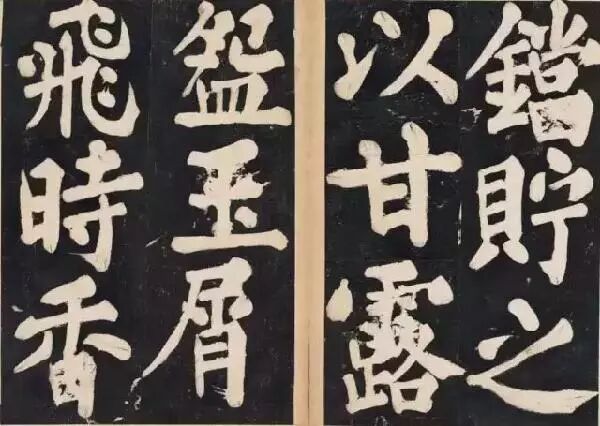 鐺貯之
以甘露
盌玉屑
飛時香